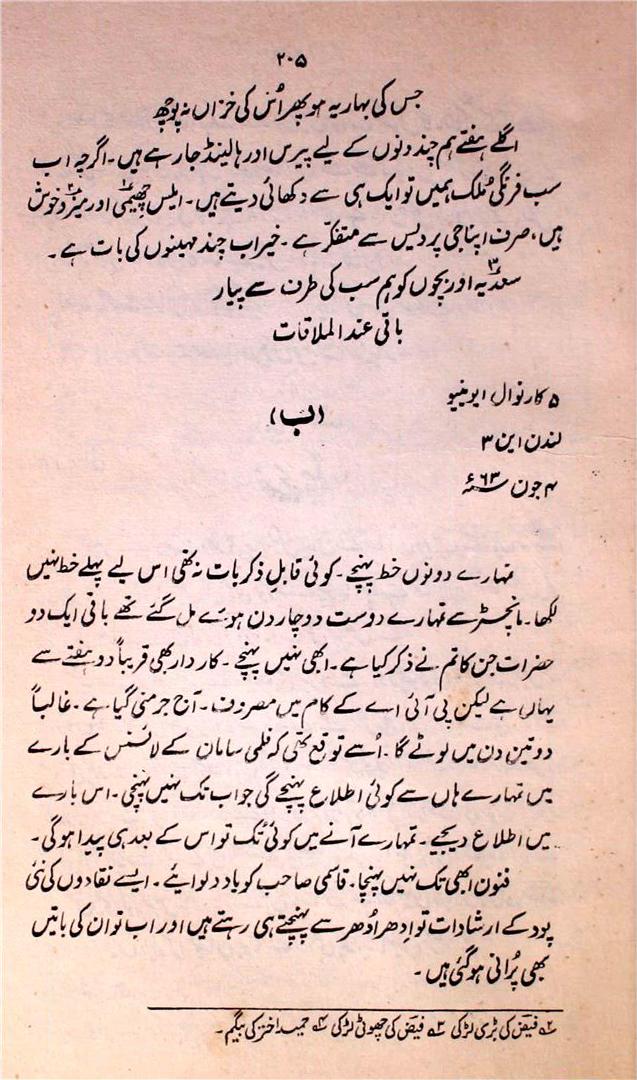 ۲۰۵
جس کی بہار یہ ہو پھر اُس کی خزاں نہ پوچھ
اگلے ہفتے ہم چند دنوں کے لیے پیرس اور ہالینڈ جا رہے ہیں۔ اگرچہ اب
سب فرنگی مُلک ہمیں تو ایک ہی سے دکھائی دیتے ہیں۔ ایلس چھیمی اور میزو خوش
ہیں، صرف اپنا جی پردیس سے متنفّر ہے۔ خیر اب چند مہینوں کی بات ہے۔
سعدیہ اور بچوں کو ہم سب کی طرف سے پیار
باقی عند الملاقات
(ب)
۵ کارنوال ایونیو
لندن این ۳
۴ جون ۶۳ء
تمہارے دونوں خط پہنچے۔ کوئی قابلِ ذکر بات نہ تھی اس لیے پہلے خط نہیں
لکھا۔ مانچسٹر سے تمہارے دوست دو چار دن ہوئے مل گئے تھے باقی ایک دو
حضرات جن کا تم نے ذکر کیا ہے۔ ابھی نہیں پہنچے۔ کاردار بھی قریباً دو ہفتے سے
یہاں ہے لیکن پی آئی اے کے کام میں مصروف۔ آج جرمنی گیا ہے۔ غالباً
دو تین دن میں لوٹے گا۔ اُسے توقع تھی کہ فلمی سامان کے لائسنس کے بارے
میں تمہارے ہاں سے کوئی اطلاع پہنچے گی جو اب تک نہیں پہنچی۔ اس بارے
میں اطلاع دیجیے۔ تمہارے آنے میں کوئی تُک تو اس کے بعد ہی پیدا ہوگی۔
فنون ابھی تک نہیں پہنچا۔ قاسمی صاحب کو یاد دلوایئے۔ ایسے نقادوں کی نئی
پود کے ارشادات تو اِدھر اُدھر سے پہنچتے ہی رہتے ہیں اور اب تو ان کی باتیں
بھی پُرانی ہو گئی ہیں۔
۲؎ فیض کی بڑی لڑکی ۳؎ فیض کی چھوٹی لڑکی ۴؎ حمید اختر کی بیگم۔